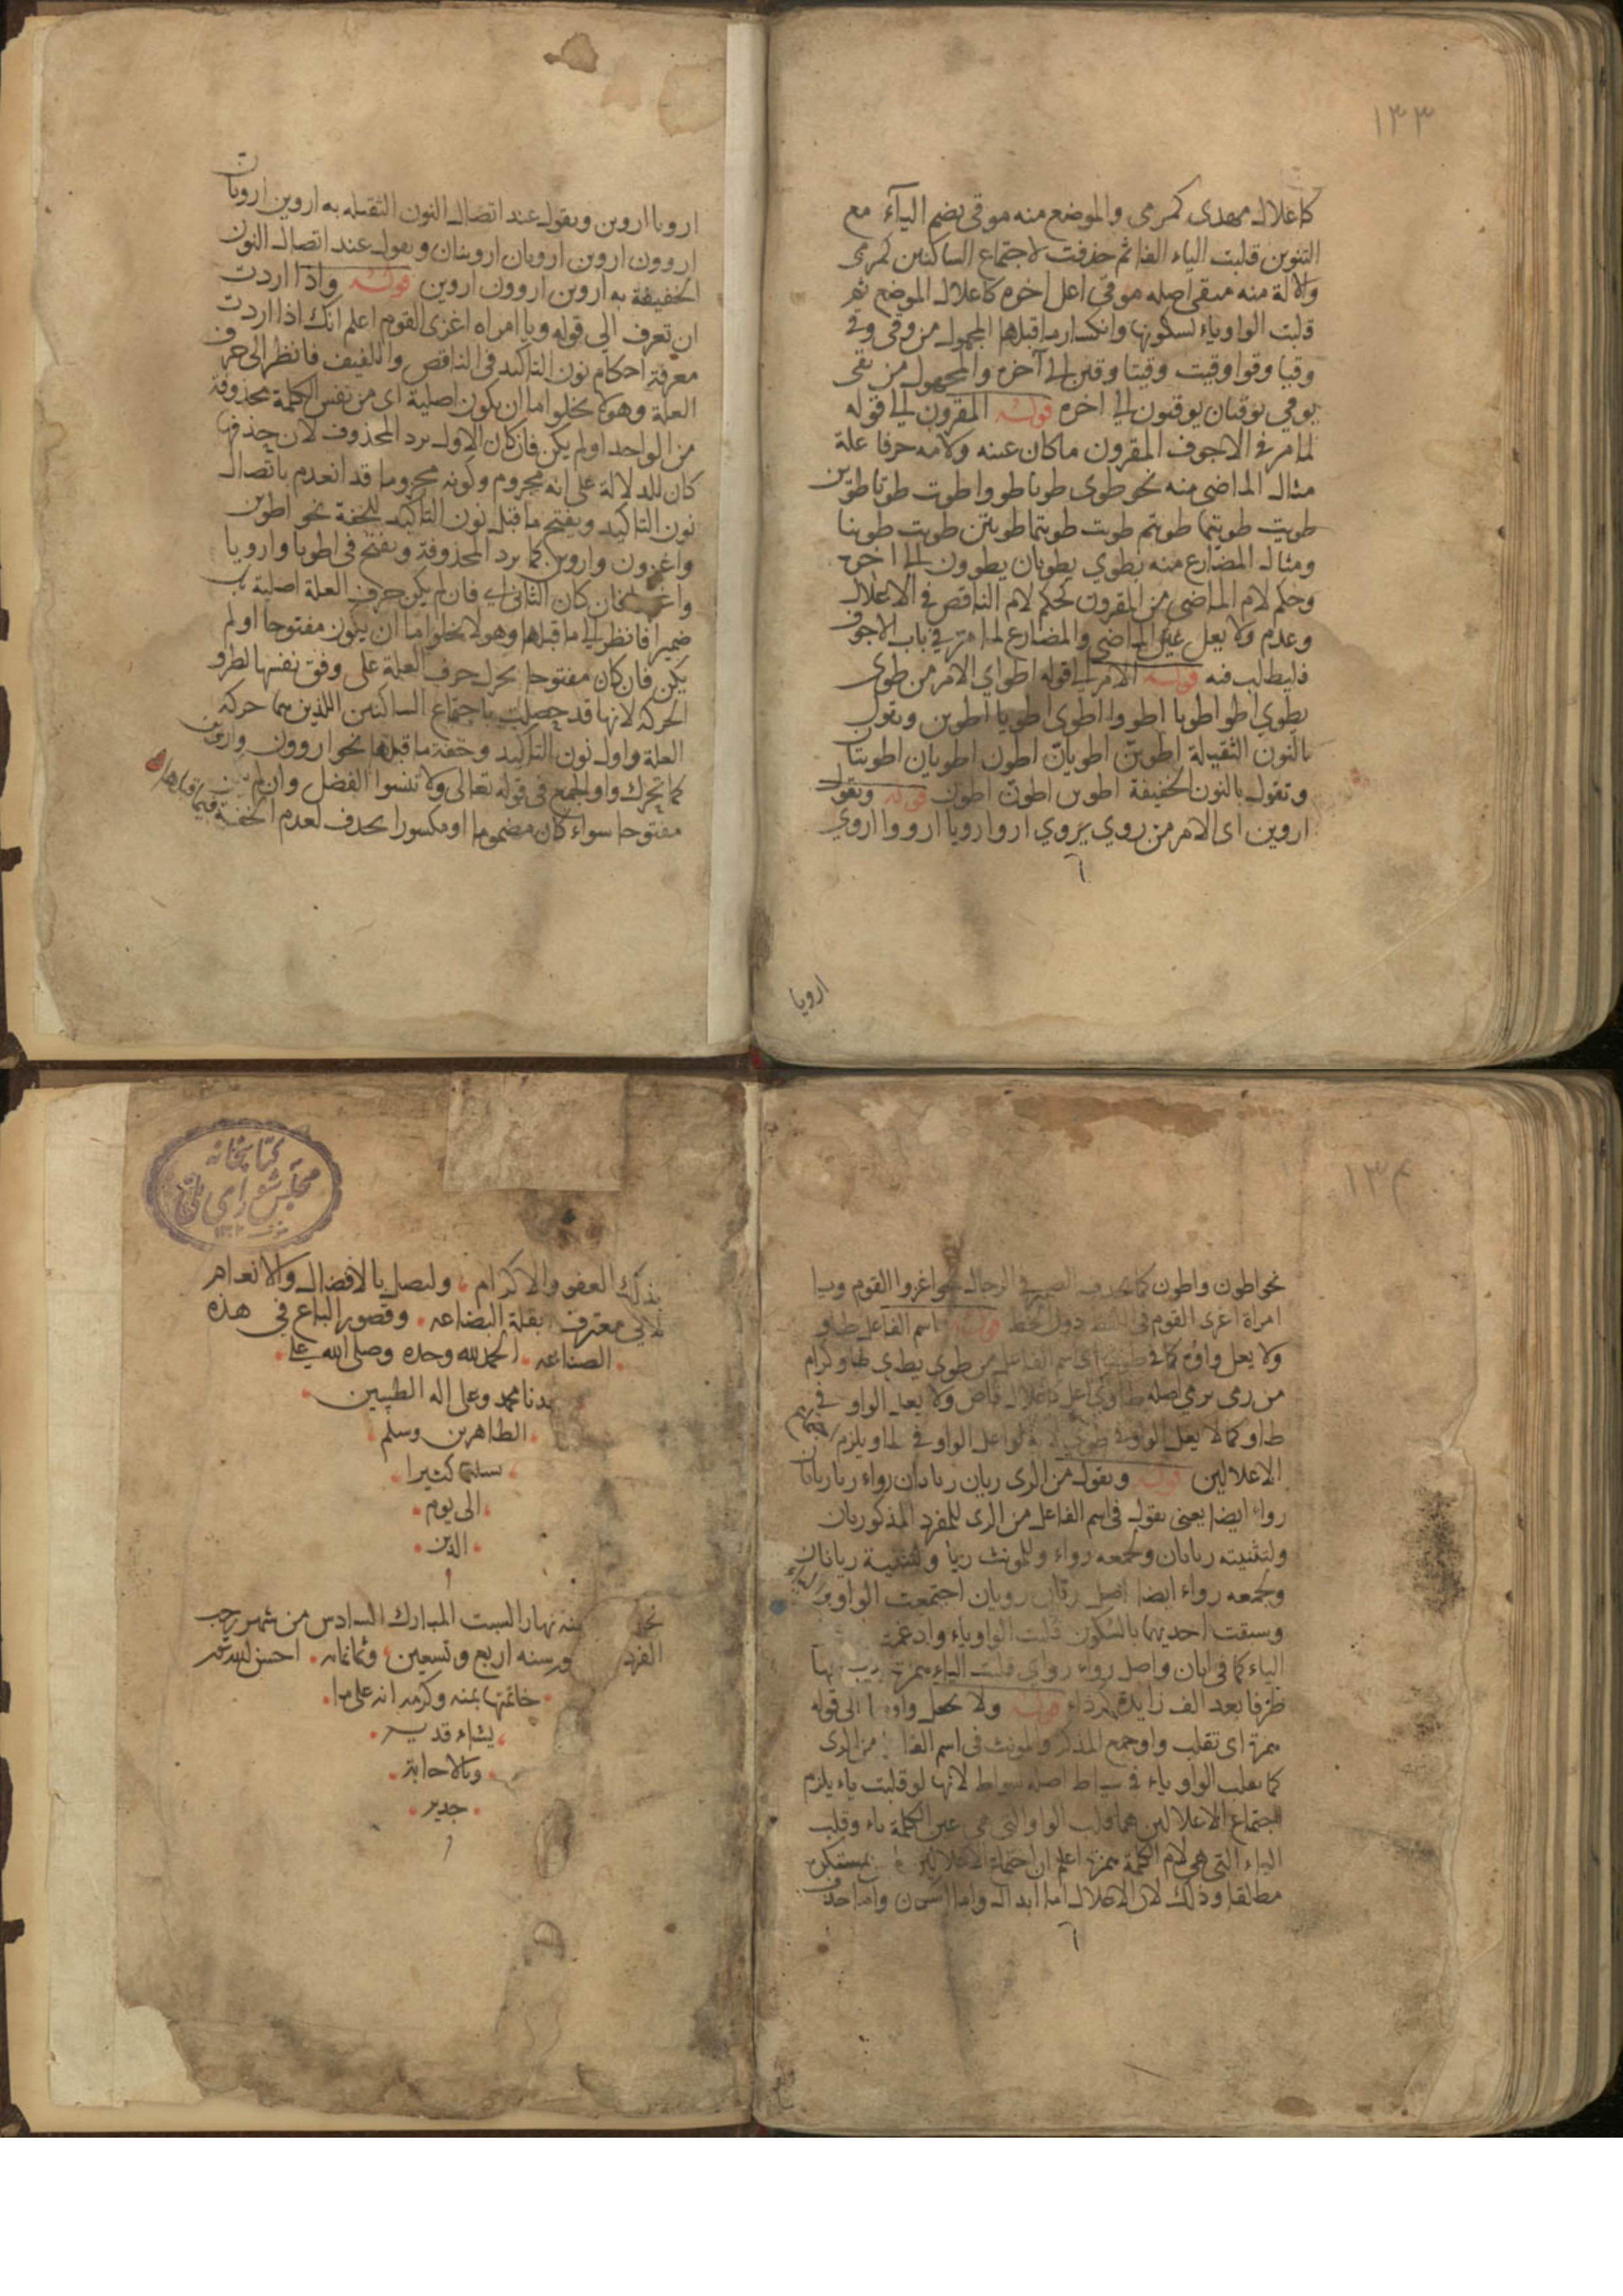 ١٣٣
كاعلال مهدى كمرمى والموضع منه موقى بضم الياء مع
التنوين قلبت الياء الفا ثم حذفت لاجتماع الساكنين كمرمى
والالة منه ميقى اصله موقى اعل اخره كاعلال الموضع ثم
قلبت الواو ياء لسكونها وانكسار ما قبلها المجهول من وقى وقى
وقيا وقوا وقيت وقيتا وقين الى آخره والمجهول من يقى
يوقى يوقيان يوقون الى اخره قوله المقرون الى قوله
لما مر فى الاجوف المقرون ما كان عينه ولامه حرفا علة
مثال الماضى منه نحو طوى طويا طووا طوت طوتا طوين
طويت طويتما طويتم طويت طويتما طويتن طويت طوينا
ومثال المضارع منه يطوي يطويان يطوون الى اخره
وحكم لام الماضى من المقرون كحكم لام الناقص فى الاعلال
وعدم ولا يعل عين الماضى والمضارع لما مر فى باب الاجوف
فليطلب فيه قوله الامر الى قوله اطو اي الامر من طوى
يطوي اطو اطويا اطووا اطوى اطويا اطوين وتقول
بالنون الثقيلة اطوين اطويان اطون اطوين اطويان اطوينان
وتقول بالنون الخفيفة اطوين اطون اطون قوله وتقول
اروين اى الامر من روي يروي ارو ارويا ارووا اروي
ارويا
ارويا اروين ويقول عند اتصال النون الثقيله به اروين ارويان
اروون اروين ارويان اروينان ويقول عند اتصال النون
الخفيفة به اروين اروون اروين قوله واذا اردت
ان تعرف الى قوله ويا امراه اغزى القوم اعلم انك اذا اردت
معرفة احكام نون التأكيد فى الناقص واللفيف فانظر الى حرف
العلة وهو لا يخلوا اما ان يكون اصلية اى من نفس الكلمة محذوفة
من الواحد او لم يكن فان كان الاول يرد المحذوف لان حذفها
كان للدلالة على انه مجزوم وكونه مجزوما قد انعدم باتصال
نون التاكيد ويفتح ما قبل نون التاكيد للخفة نحو اطوين
واغزون واروين كما يرد المحذوفة ويفتح فى اطويا وارويا
كان الثانى اى فان لم يكن حرف العلة اصلية بل
ضميرا فانظر الى ما قبلها وهو لا يخلوا اما ان يكون مفتوحا او لم
يكن فان كان مفتوحا يحرك حرف العلة على وفق نفسها لطرو
الحركة لانها قد حصلت باجتماع الساكنين اللذين هما حركة
العلة واول نون التاكيد وخفة ما قبلها نحو اروون واروين
كما تحرك واو الجمع فى قوله تعالى ولا تنسوا الفضل وان لم يكن ما قبلها
مفتوحا سواء كان مضموما او مكسورا يحذف لعدم الخفة فيما قبلها
١٣٤
نحو اطون واطون كما يحذف الضمير فى الرجال نحو اغزوا القوم ويا
امراة اغزى القوم فى اللفظ دون الخط قوله اسم الفاعل طاو
ولا يعل واوه كما فى طوى اى اسم الفاعل من طوى يطوي طاو كرام
من رمى يرمي اصله طاوي اعل كاعلال قاض ولا يعل الواو فى
طاو كما لا يعل الواو فى طوى لانه لو اعل الواو فى طاو يلزم اجتماع
الاعلالين قوله وتقول من الرى ريان ريانان رواء ريا رييان
رواء ايضا يعنى يقول فى اسم الفاعل من الرى للمفرد المذكر ريان
ولتثنيته ريانان ولجمعه رواء وللمونث ريا ولتثنية رييان
ولجمعه رواء ايضا اصل ريان رويان اجتمعت الواو والياء
وسبقت احديهما بالسكون قلبت الواو ياء وادغمت
الياء كما فى ايان واصل رواء رواي قلبت الياء همزة
طرفا بعد الف زايدة كرداء قوله ولا تجعل واوها الى قوله
همزة اى تقلب واو جمع المذكر والمونث فى اسم الفا من الرى
كما يقلب الواو ياء فى سياط اصله سواط لانها لو قلبت ياء يلزم
اجتماع الاعلالين هما قلب الواو التى هى عين الكلمة ياء وقلب
الياء التى هى لام الكلمة همزة اعلم ان اجتماع الاعلالين بمستكره
مطلقا وذلك لان الاعلال اما ابدال واما اسكان واما حذف
كتابخانه
مجلس شوراى ملى
بذلك العفو والاكرام وليصل بالافضال والانعام
معترف بقلة البضاعه وقصور الباع فى هذه
الصناعه الحمد لله وحده وصلى الله على
سيدنا محمد وعلى اله الطيبين
الطاهرين وسلم
تسليما كثيرا
الى يوم
الدين
نجز نهار السبت المبارك السادس من شهر رجب
الفرد سنه اربع وتسعين وثمانمائه احسن الله
خاتمتها بمنه وكرمه انه على ما
يشاء قدير
وبالاجابة
جدير